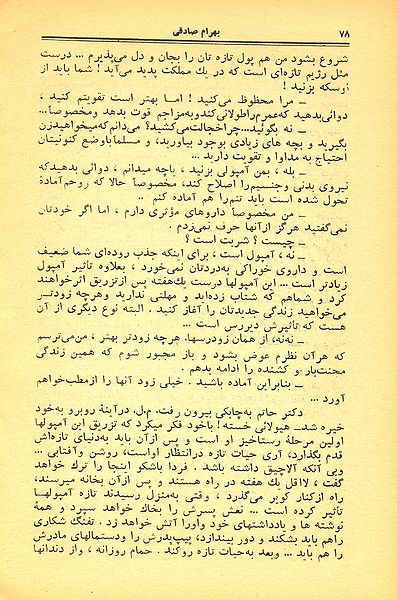 ۷۸ بهرام صادقی
شروع بشود من هم پول تازه تان را بجان و دل می‌پذیرم ... درست
مثل رژیم تازه‌ای است که در یك مملکت پدید می‌آید ! شما باید از
او سکه بزنید !
ــ مرا محظوظ می‌کنید ! اما بهتر است تقویتم کنید ،
دوائی‌بدهید که‌عمرم‌راطولانی‌کندوبه‌مزاجم قوت بدهد ومخصوصاً...
ــ نه بگوئید...چراخجالت‌می‌کشید؟ می‌دانم‌که‌میخواهیدزن
بگیرید و بچه های زیادی بوجود بیاورید، و مسلماً باوضع کنونیتان
احتیاج به مداوا و تقویت دارید ...
ــ بله ، بمن آمپولی بزنید ، باچه میدانم ، دوائی بدهیدکه
نیروی بدنی وجنسیم‌را اصلاح کند، مخصوصاً حالا که روحم‌آمادهٔ
تحول شده است باید تنم‌را هم آماده کنم ..
ــ من مخصوصاً داروهای مؤثری دارم ، اما اگر خودتان
نمی‌گفتید هرگز ازآنها حرف نمی‌زدم .
ــ چیست ؟ شربت است ؟
ــ نه ، آمپول است ، برای اینکه جذب روده‌ای شما ضعیف
است و داروی خوراکی به‌دردتان نمی‌خورد ، بعلاوه تأثیر آمپول
زیادتر است ... این آمپولها درست یك‌هفته پس ازتزریق اثرخواهند
کرد و شماهم که شتاب زده‌اید و مهلتی ندارید وهرچه زودتر
می‌خواهید زندگی جدیدتان را آغاز کنید . البته نوع دیگری از آن
هست که تأثیرش دیررس است ...
ــ نه‌نه، از همان زودرسها. هرچه زودتر بهتر ، من‌می‌ترسم
که هرآن نظرم عوض بشود و باز مجبور شوم که همین زندگی
محنت‌بار و کشنده را ادامه بدهم .
ــ بنابراین آماده باشید . خیلی زود آنها را ازمطب‌خواهم
آورد ...
دکتر حاتم به‌چابکی بیرون رفت. م.ل. درآینهٔ روبرو به‌خود
خیره شد_ هیولائی خسته! باخود فکر میکرد که تزریق این آمپولها
اولین مرحلهٔ رستاخیز او است و پس ازآن باید به‌دنیای تازه‌اش
قدم بگذارد، آری حیات تازه درانتظار اواست، روشن وآفتابی ...
وبی آنکه آلاچیق داشته باشد . فردا باشکو اینجا را ترك خواهد
گفت ، لااقل یك هفته در راه هستند و پس ازآن بخانه میرسند،
راه ازکنار کویر می‌گذرد ، وقتی به‌منزل رسیدند تازه آمپولها
تأثیر کرده است ... نعش پسرش را بخاك خواهد سپرد و همهٔ
نوشته ها و یادداشتهای خود واورا آتش خواهد زد . تفنگ شکاری
راهم باید بشکند و دور بیندازد، پیپ‌پدرش را ودستمالهای مادرش
را هم باید ... وبعد به‌حیات تازه روکند . حمام روزانه ، واز دندانها